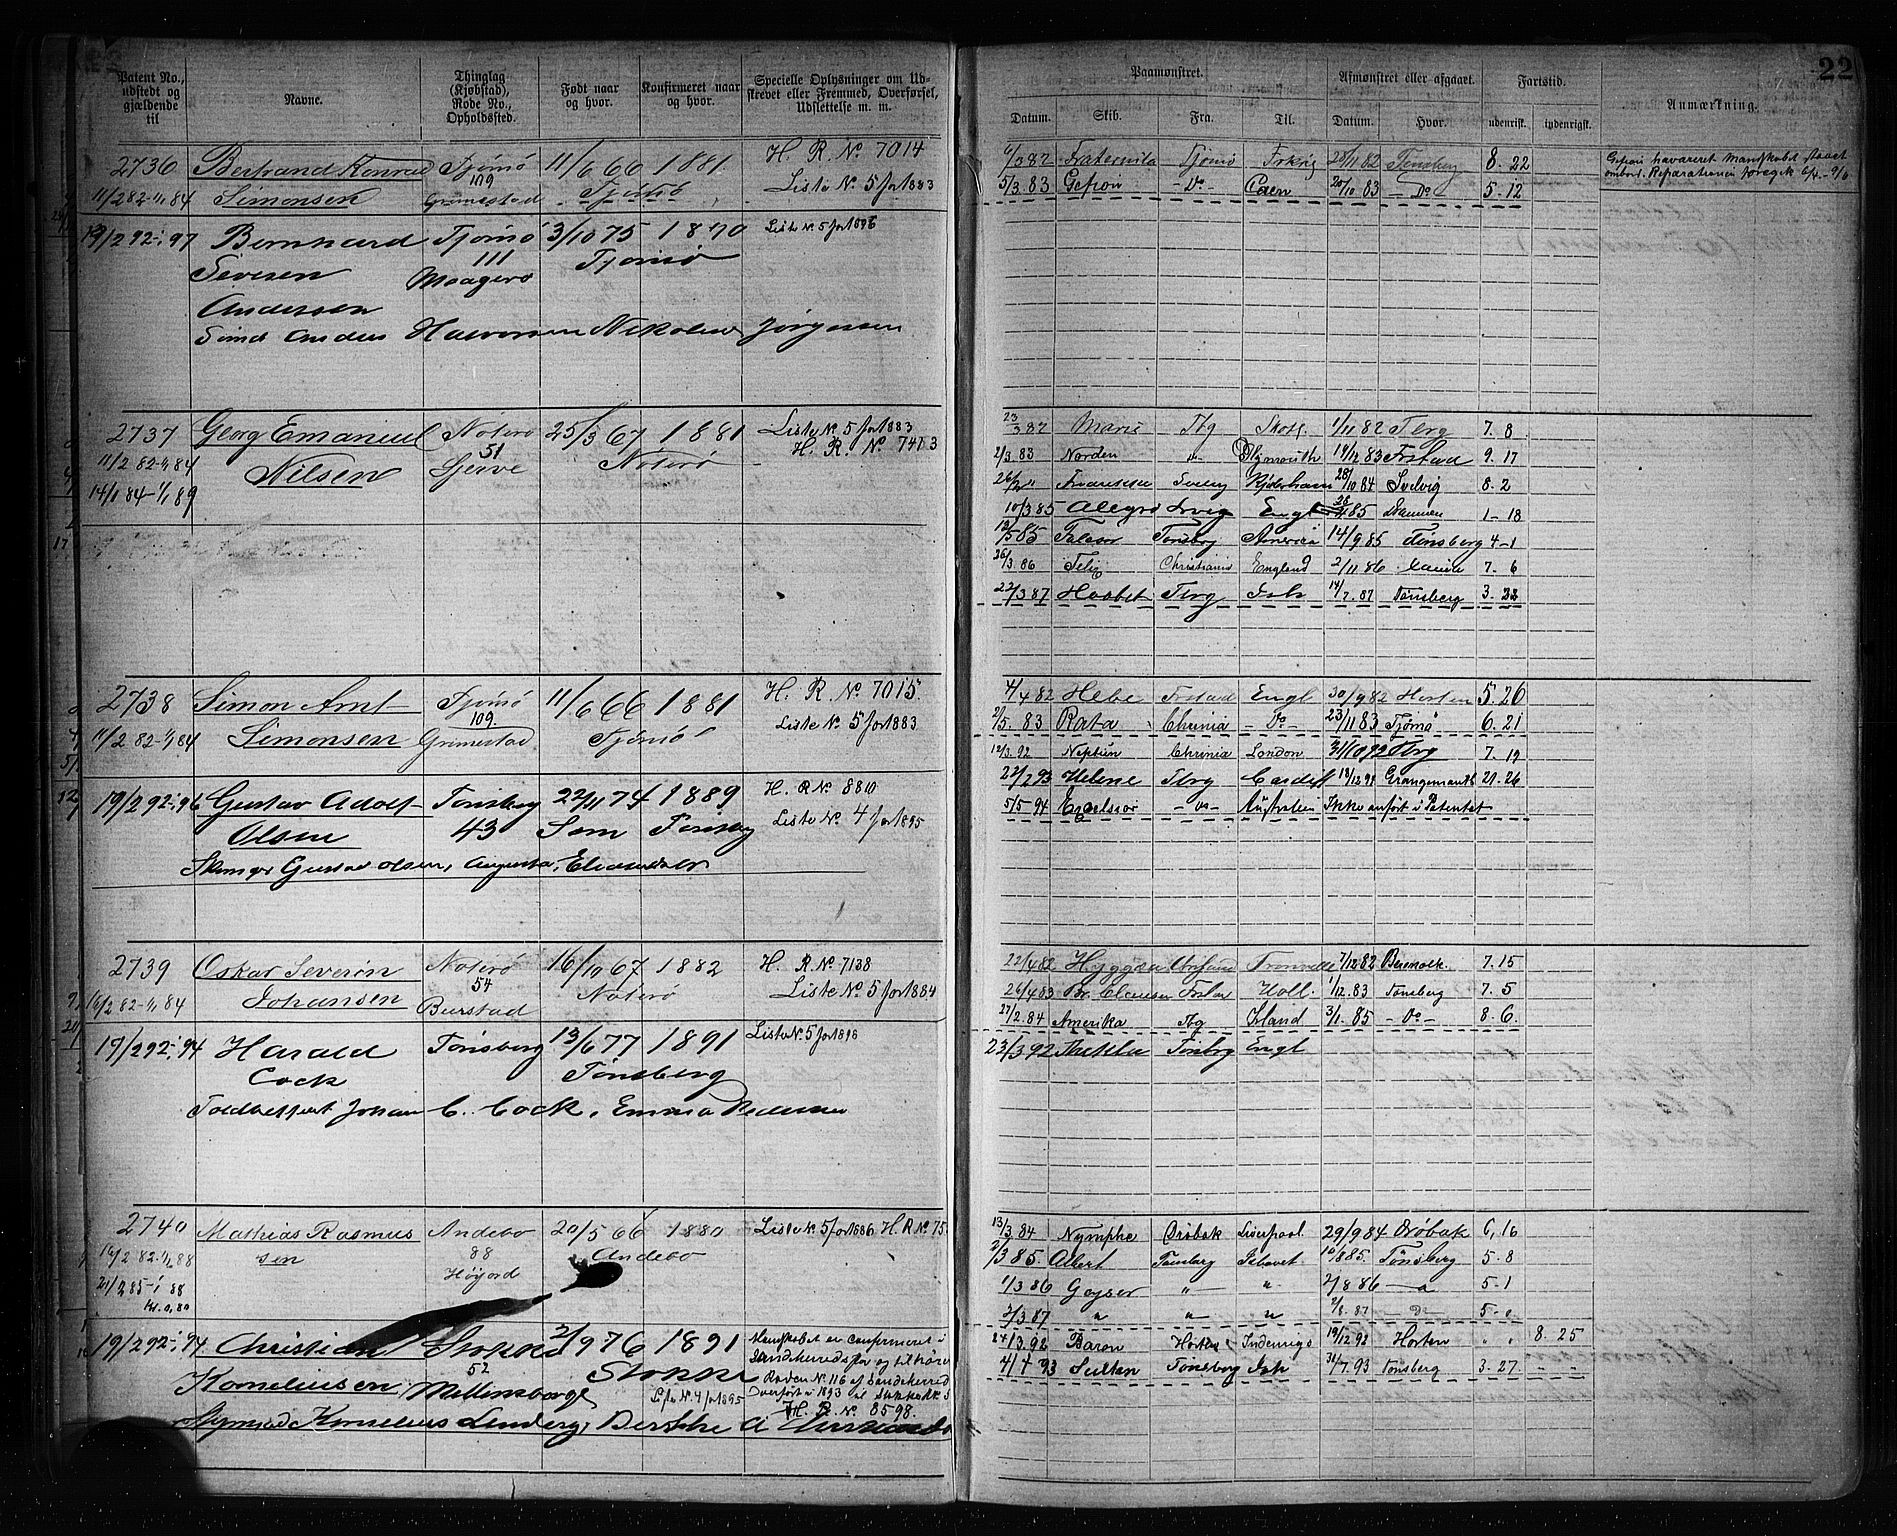 22
Patent No., udstedt og gjældende til
Navne.
Thinglag (Kjøbstad), Rode No., Opholdssted.
Født naar og hvor.
Konfirmeret naar og hvor.
Specielle Oplysninger om Udstrevet eller Fremmed, Overførsel, Udslettelse m. m.
Paamønstret.
Afmønstret eller afgaaet.
Fartstid.
Anmærkning.
Datum. Skib. Fra. Til. Datum. Hvor. udenrigsk. indenrigsk.
2736 Bertrand Konrad Tjømø 11/6 66 1881 H. R. No 7014
11/2 82-1/1 84 Simonsen 109 Grimestad Tjømø Liste No 5 for 1883
Fraternitas Tjømø 28/11 82 Tønsberg 8. 22
5/3. 83 Gefion - Do - Caen 20/10 83 - Do 5. 12
Gefion havareret Mandskabet
ombord. Reparationen foregik
19/2 92-1/1 97 Bernhard Tjømø 3/10 75 1890 Liste No 5 for 1896
Seversen 111 Tjømø
Andersen Maagerø
Anders Halvorsen Nikoline Jørgensen
2737 Georg Emanuel Nøterø 25/3 67 1881 Liste No 5 for 1883
11/2 82-1/1 84 Nilsen 51 Nøterø H. R. No 7413
14/1 84-1/1 89 Gjerve
23/3 82 Marie Tbg 1/11 82 Tbrg 7. 8
2/3. 83 Norden " Plymouth 19/12 83 Frstad 9. 17
26/2 " Svelvig 8. 2
10/3 85 Allegro Lrvig Engl 85 Drammen 1-18
12/5 85 Falcon Tønsbrg America 14/9. 85 Tønsberg 4-1
26/3. 86 Felix Christiania England 2/11 86 7. 6
22/3 87 Haabet Tbrg 14/7. 87 Tønsberg 3. 22
2738 Simon Arnt Tjømø 11/6 66 1881 H. R. No 7015
11/2 82-1/1 84 Simonsen 109 Grimestad Tjømø Liste No 5 for 1883
4/4 82 Hebe Frstad Engl 30/9 82 Horten 5. 26
2/5. 83 Rota Chrinia - Do - 23/11 83 Tjømø 6. 21
12/3. 92 Neptun Chrinia London 31/10 92 Tbrg 7. 19
22/2 93 Helene Tbrg Cardiff 18/12 94 Grangemouth 21. 26
5/5 94 Excelsior - Do - Australien Ikke anført i Patentet
19/2 92-1/1 96 Gustav Adolf Tønsberg 22/11 74 1889 H. R No 8810
Olsen 43 Sem Tønsbg Liste No 4 for 1895
Gustav Olsen, Augusta
2739 Oskar Severin Nøterø 16/10 67 1882 H. R No 7138
16/2 82-1/1 84 Johansen 54 Nøterø Liste No 5 for 1884
Buerstad
22/4 82 Hygæa 7/12 82 7. 15
26/4 83 Br. Clausen Holl. 1/12. 83 Tønsberg 7. 5
27/2. 84 Amerika Tbg Irland 3/1. 85 - Do - 8 6.
19/2 92-1/1 94 Harald Tønsberg 13/6 77 1891 Liste No 5 for 1898
Cock Tønsberg
Toldbetjent Johan C. Cock, Emma Pedersen
23/3 92 Thekla Tønsbrg Engl
2740 Mathias Rasmus Andebo 20/5 66 1880 Liste No 5 for 1886 H. R No 75
16/2 82-1/1 88 sen 88 Andebo
21/2 85-1/1 88 Høyjord
kr. 0,80
13/3. 84 Nymphe Drøbak Liverpool 29/9 84 Drøbak 6, 16
2/3 85. Albert Tønsberg Ishavet 10/8 85. Tønsberg 5-8
1/3 86 Geyser " " 2/8 86 - " 5-1
2/3 87 " " " 2/8. 87 - Do - 5-0
19/2 92-1/1 94 Christian Stokke 2/9 76 1891 Mandskabet er confirmeret i
52 Stokke Sandeherreds og tilhører
Korneliusen Møllensborge Roden No. 116 af Sandeherred
Liste No. 4 for 1895 Overført i 1893 til Stokke
H. R. No 8598.
Kornelius Lundberg,
24/3. 92 Baron Horten Indenrigs 19/12 92 Horten " " 8. 25
4/4 93 Sultan Tønsberg Ish 31/7. 93 Tønsberg 3. 27 " "